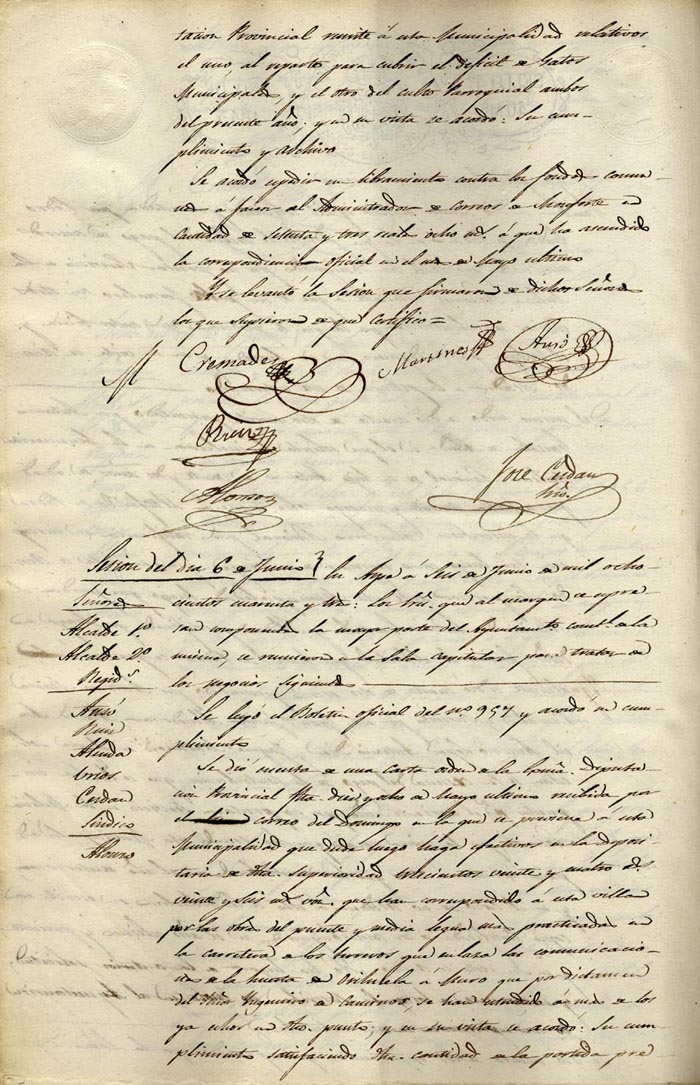 tacion Provincial remite á esta Municipalidad relativos
el uno, al reparto para cubrir el deficit de Gastos
Municipales, y el otro del culto Parroquial ambos
del presente año; y en su vista se acordó: Su cum-
plimiento y archivo
Se acordó expedir un libramiento contra los fondos comu-
nes á favor del Administrador de correos de Monforte en
cantidad de setenta y tres reales ocho ms. á que ha ascendido
la correspondencia oficial en el mes de Mayo ultimo
Y se levantó la Sesion que firmaron de dichos Señores
los que supieron de que certifico =
Cremades
Martinez
Azuar
Ruiz
Alonso
Jose Cerdan
Srio.
Sesion del dia 6 de Junio
En Aspe á Seis de Junio de mil ocho-
Señores
cientos cuarenta y tres: Los Sres. que al margen se espre-
Alcalde 1º.
san componentes la mayor parte del Ayuntamto. constl. de la
Alcalde 2º.
misma, se reunieron en la Sala capitular para tratar de
Regids.
los negocios siguientes
Ruiz
Almda
Cerdan
Sindico
Alonso
Se leyó el Boletin oficial del nº. 957 y acordó su cum-
plimiento
Se dió cuenta de una carta orden de la Exma. Diputa-
cion Provincial fha. diez y ocho de Mayo ultimo recibida por
el correo del Domingo en la que se previene á esta
Municipalidad que desde luego haga efectivos en la deposi-
taria de dha. Superioridad trescientos veinte y cuatro rs.
veinte y seis ms. von. que han correspondido á esta villa
por las obras del puente y media legua mas practicadas en
la carretera de los hornos que enlaza las comunicacio-
nes de la huerta de Orihuela á Muro que por dictamen
del Ingeniero de Caminos, se han estendido á mas de los
ya en dho. punto; y en su vista se acordó: Su cum-
plimiento satisfaciendo dha. cantidad de la partida pre